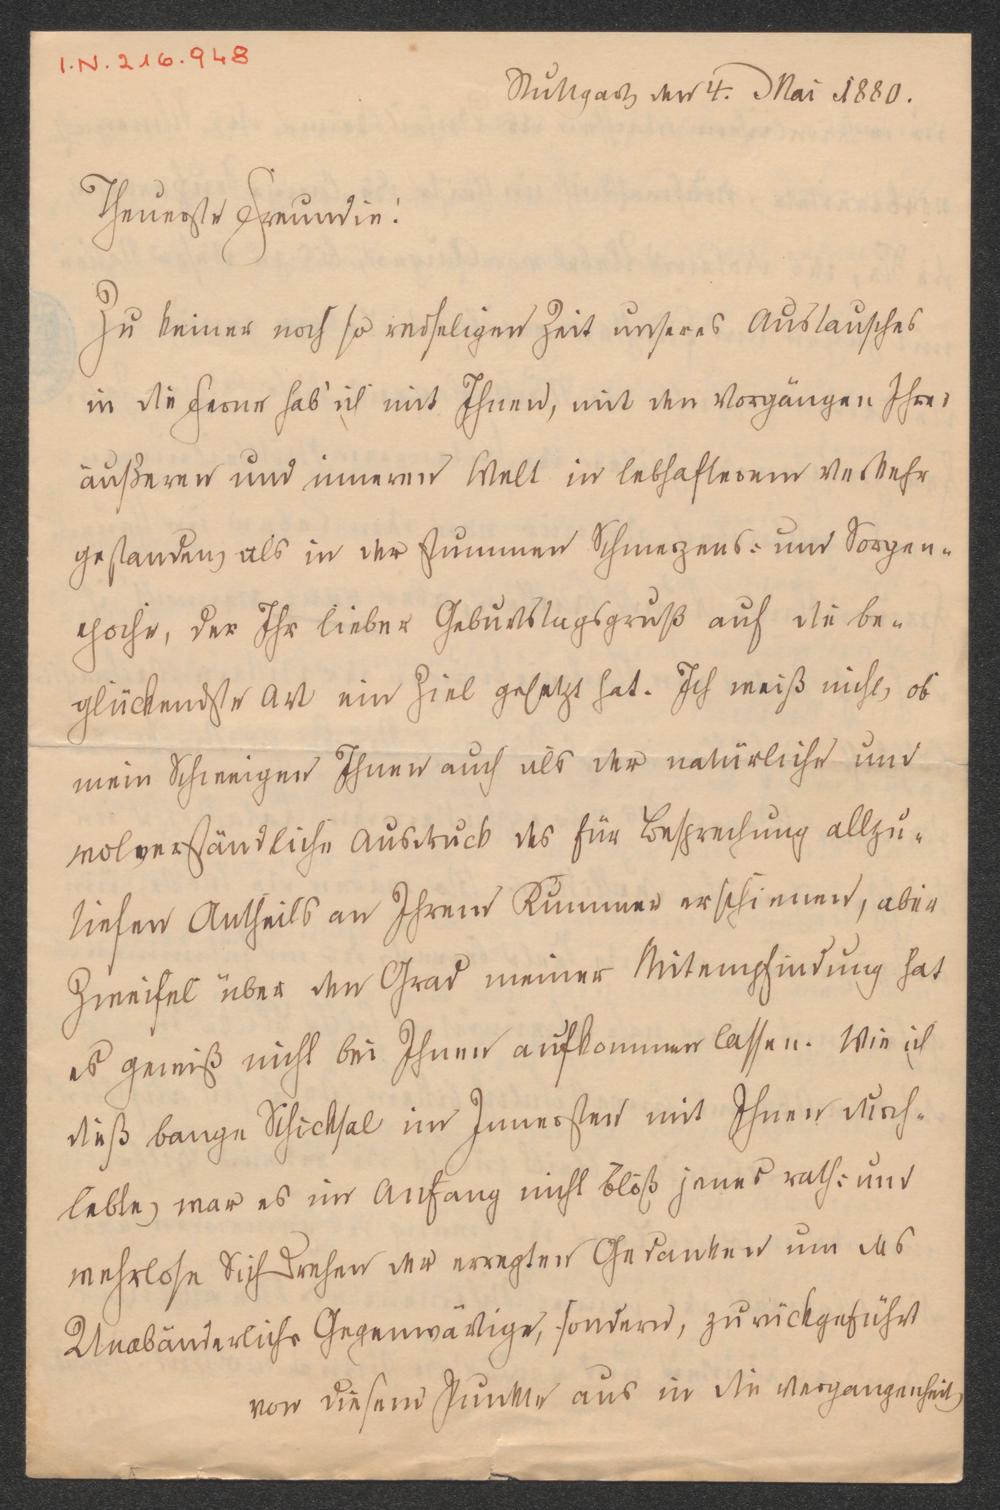 I.N. 216.948
Stuttgart den 4. Mai 1880.
Theuerste Freundin!
Zu keiner noch so redseligen Zeit unseres Austausches
in die Ferne hab' ich mit Ihnen, mit den Vorgängen Ihrer
äußeren und inneren Welt in lebhafterem Verkehr
gestanden, als in der stummen Schmerzens- und Sorgen-
epoche, der Ihr lieber Geburtstagsgruß auf die be-
glückendste Art ein Ziel gesetzt hat. Ich weiß nicht, ob
mein Schweigen Ihnen auch als der natürliche und
wolverständliche Ausdruck des für Besprechung allzu-
tiefen Antheils an Ihrem Kummer erschienen, aber
Zweifel über den Grad meiner Mitempfindung hat
es gewiß nicht bei Ihnen aufkommen lassen. Wie ich
dieß bange Schicksal im Innersten mit Ihnen durch-
lebte, war es im Anfang nicht bloß jenes rath- und
wehrlose Sich Drehen der erregten Gedanken um das
Unabänderliche Gegenwärtige, sondern, zurückgeführt
von diesem Punkte aus in die Vergangenheit,